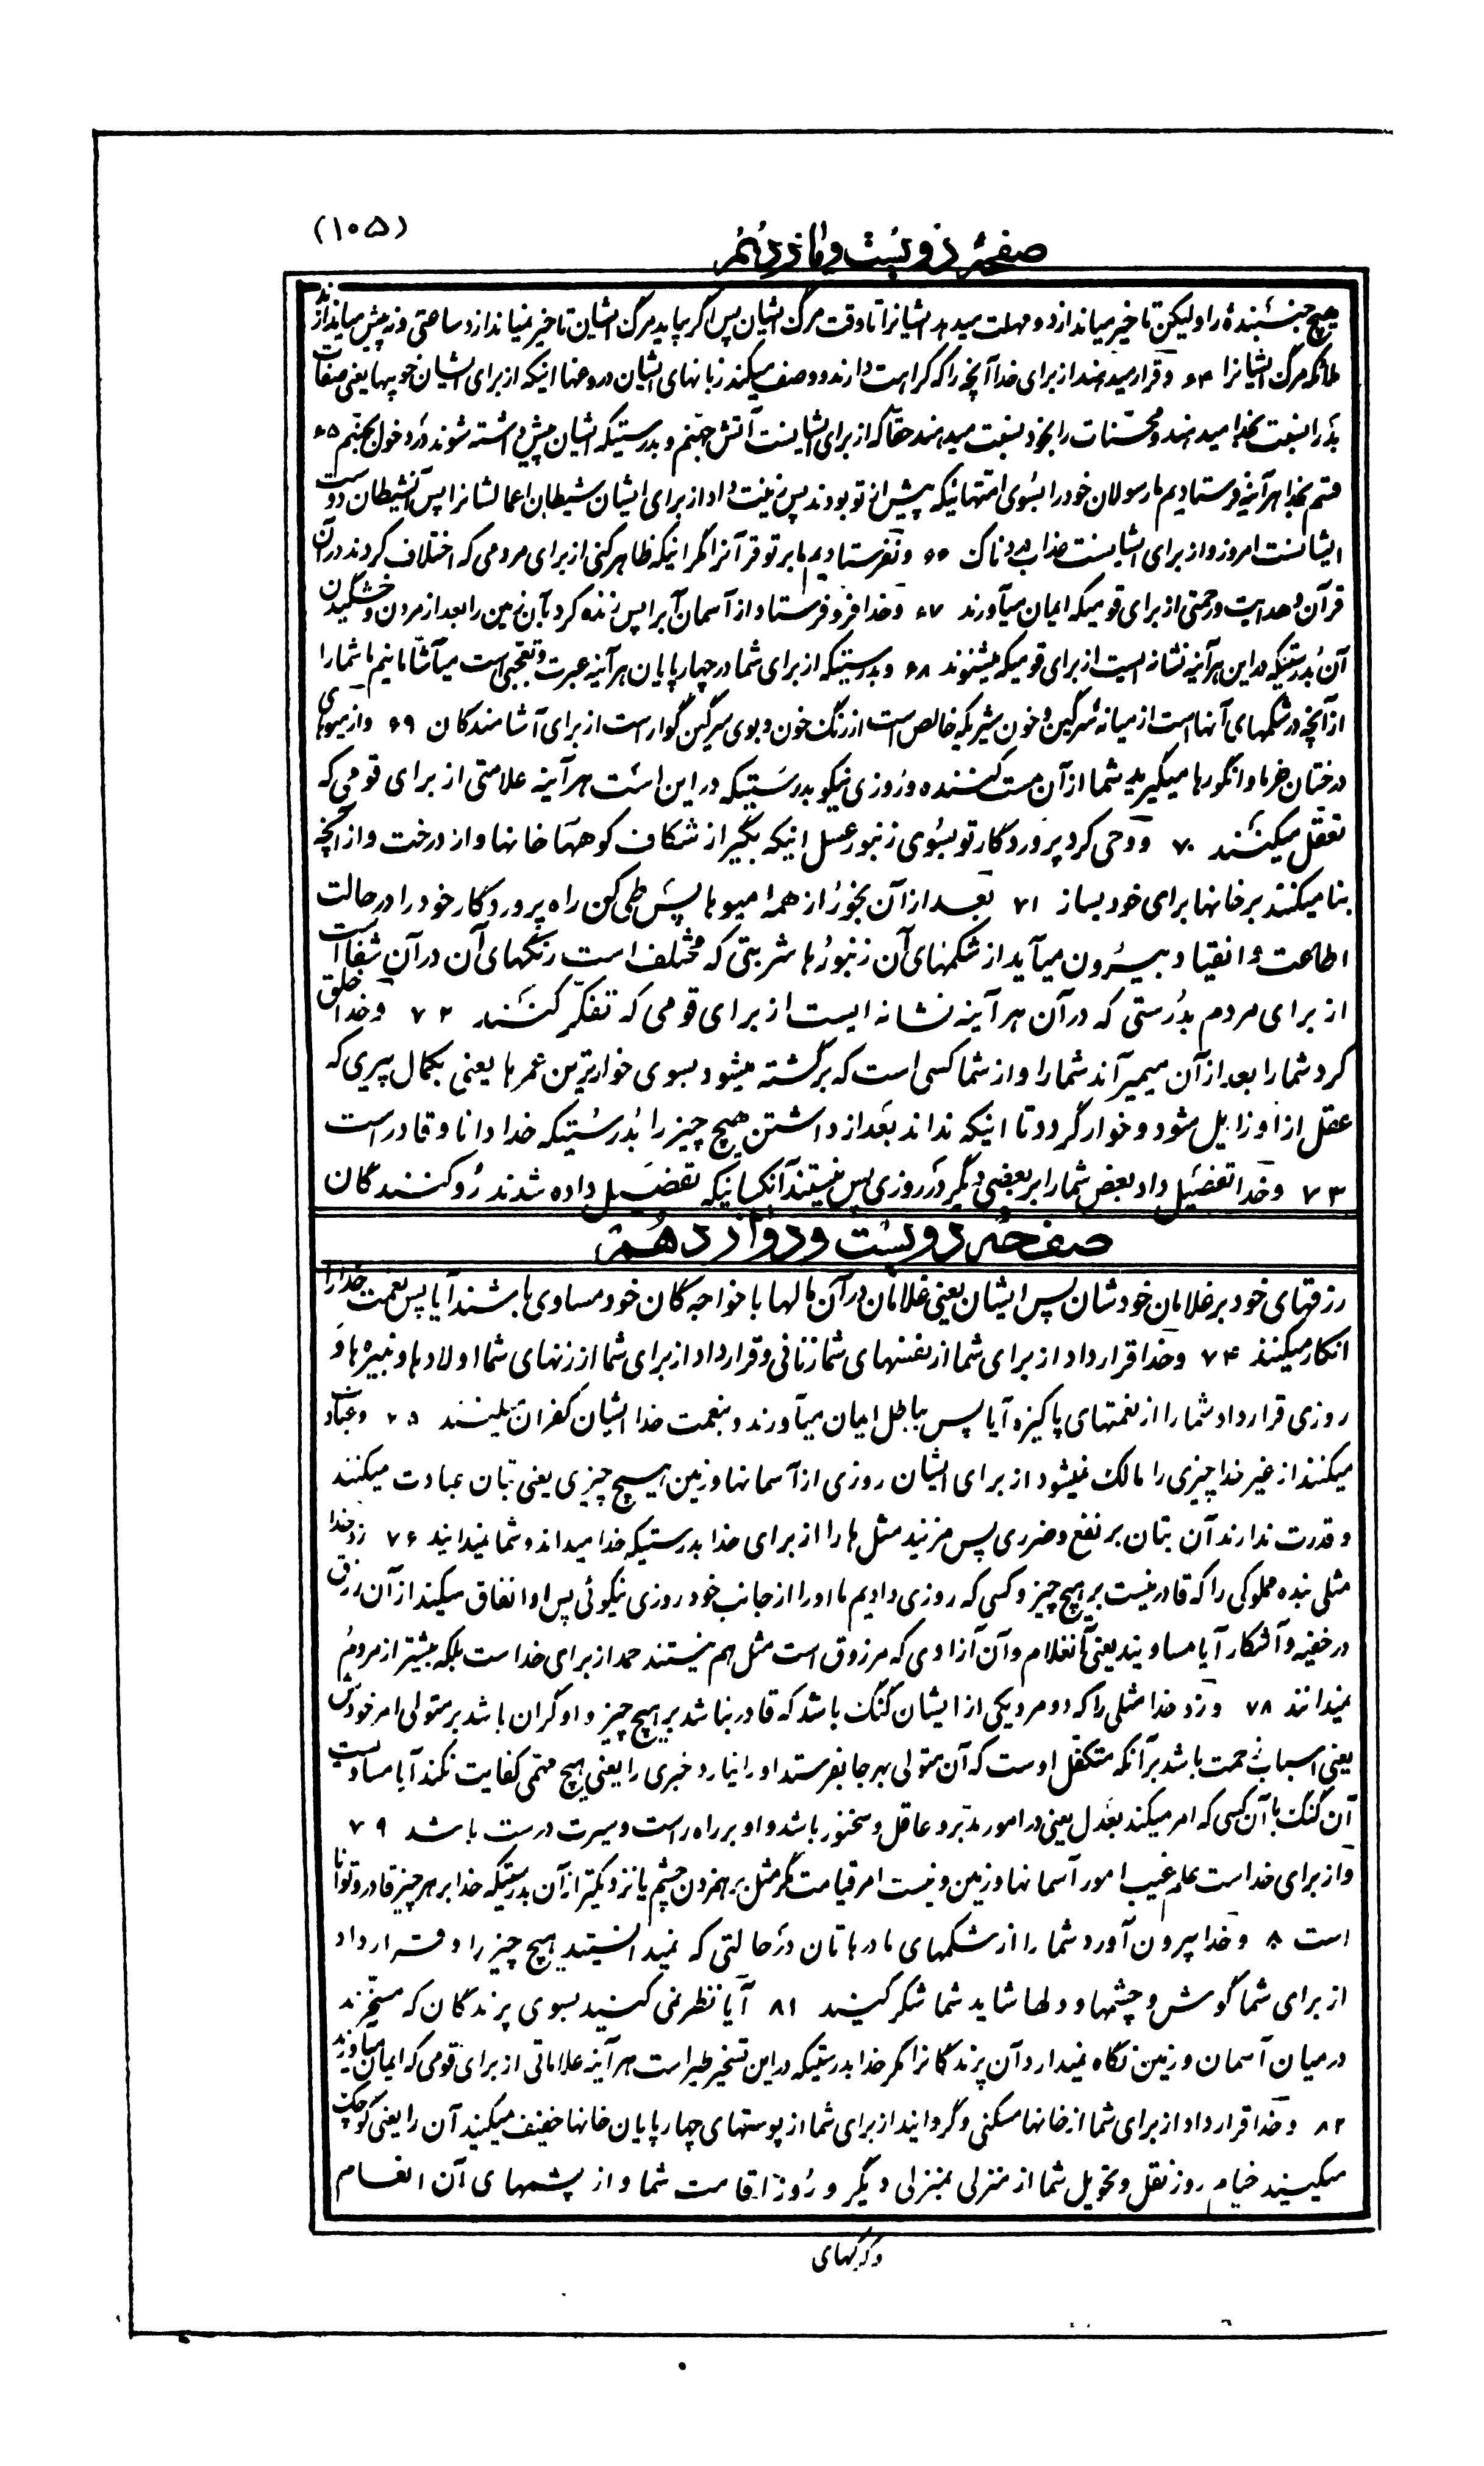 (۱۰۵)
صفحهٔ دویست و یازدهم
هیچ جنبنده را ولیکن تاخیر میاندازد و مهلت میدهد ایشانرا تا وقت مرگ ایشان پس اگر بیاید مرگ ایشان تاخیر نمیاندازد ساعتی و نه پیش میاندازند
ملائکه مرگ ایشانرا ۶۴ و قرار میدهند از برای خدا آنچه را که کراهت دارند و وصف میکند زبانهای ایشان دروغها اینکه از برای ایشان خوبیها یعنی صفات
بد را نسبت بخدا میدهند و محسنات را بخود نسبت میدهند حقا که از برای ایشانست آتش جهنم و بدرستیکه ایشان پیش داشته شوند در دخول جهنم ۶۵
قسم بخدا هرآینه فرستادیم ما رسولان خود را بسوی امتهائیکه پیش از تو بودند پس زینت داد از برای ایشان شیطان اعمالشانرا پس آنشیطان دوست
ایشانست امروز و از برای ایشانست عذاب دردناک ۶۶ و نفرستادیم ما بر تو قرآنرا مگر اینکه ظاهر کنی از برای مردمی که اختلاف کردند در آن
قرآن و هدایت و رحمتی از برای قومیکه ایمان میآورند ۶۷ و خدا فرو فرستاد از آسمان آبرا پس زنده کرد بآن زمین را بعد از مردن و خشگیدن
آن بدرستیکه در این هرآینه نشانه ایست از برای قومیکه میشنوند ۶۸ و بدرستیکه از برای شما در چهارپایان هرآینه عبرت و تعجبی است میآشامانیم ما شما را
از آنچه در شکمهای آنها است از میانه سرگین و خون شیریکه خالص است از رنگ خون و بوی سرگین گوار است از برای آشامندگان ۶۹ و از میوهای
درختان خرما و انگورها میگیرید شما از آن مست کننده و روزی نیکو بدرستیکه در این است هرآینه علامتی از برای قومی که
تعقل میکنند ۷۰ و وحی کرد پروردگار تو بسوی زنبور عسل اینکه بگیر از شکاف کوهها خانها و از درخت و از آنچه
بنا میکنند برخانها برای خود بساز ۷۱ بعد از آن بخور از همهٔ میوها پس طی کن راه پروردگار خود را در حالت
اطاعت و انقیاد و بیرون میآید از شکمهای آن زنبورها شربتی که مختلف است رنگهای آن در آن شفا است
از برای مردم بدرستی که در آن هرآینه نشانه ایست از برای قومی که تفکر کنند ۷۲ و خدا خلق
کرد شما را بعد از آن میمیراند شما را و از شما کسی است که برگشته میشود بسوی خوارترین عمرها یعنی بکمال پیری که
عقل از او زایل شود و خوار گردد تا اینکه نداند بعد از داشتن هیچ چیز را بدرستیکه خدا دانا و قادر است
۷۳ و خدا تفضیل داد بعض شما را بر بعضی دیگر در روزی پس نیستند آنکسانیکه تفضیل داده شدند رد کنندگان
صفحهٔ دویست و دوازدهم
رزقهای خود بر غلامان خودشان پس ایشان یعنی غلامان در آن مالها با خواجه گان خود مساوی باشند آیا پس بنعمت خدا را
انکار میکنند ۷۴ و خدا قرار داد از برای شما از نفسهای شما زنانی و قرار داد از برای شما از زنهای شما اولادها و نبیره ها و
روزی قرار داد شما را از نعمتهای پاکیزه آیا پس بباطل ایمان میآورند و بنعمت خدا ایشان کفران میکنند ۷۵ و عبادت
میکنند از غیر خدا چیزی را مالک نمیشود از برای ایشان روزی از آسمانها و زمین هیچ چیزی یعنی بتان عبادت میکنند
و قدرت ندارند آن بتان بر نفع و ضرری پس مزنید مثل ها را از برای خدا بدرستیکه خدا میداند و شما نمیدانید ۷۶ زد خدا
مثلی بنده مملوکی را که قادر نیست بر هیچ چیز و کسی که روزی دادیم ما او را از جانب خود روزی نیکوئی پس او انفاق میکند از آن رزق
در خفیه و آشکار آیا مساویند یعنی آنغلام و آن آزادی که مرزوق است مثل هم نیستند حمد از برای خداست بلکه بیشتر از مردم
نمیدانند ۷۸ و زد خدا مثلی را که دو مرد یکی از ایشان گنگ باشد که قادر نباشد بر هیچ چیز و او گران باشد بر متولی امر خودش
یعنی اسباب زحمت باشد بر آنکه متکفل اوست که آن متولی بهر جا بفرستد او را نیارد خبری را یعنی هیچ مهمی کفایت نکند آیا مساویست
آن گنگ با آن کسی که امر میکند بعدل یعنی در امور مدبر و عاقل و سخنور باشد و او بر راه راست و سیرت درست باشد ۷۹
و از برای خداست علم غیب امور آسمانها و زمین و نیست امر قیامت مگر مثل برهم زدن چشم یا نزدیکتر از آن بدرستیکه خدا بر هر چیز قادر و توانا
است ۸۰ و خدا بیرون آورد شما را از شکمهای مادرهاتان در حالتی که نمیدانستید هیچ چیز را و قرار داد
از برای شما گوش و چشمها و دلها شاید شما شکر کنید ۸۱ آیا نظر نمی کنید بسوی پرندگان که مسخرند
در میان آسمان و زمین نگاه نمیدارد آن پرندگانرا مگر خدا بدرستیکه در این تسخیر طیر است هرآینه علاماتی از برای قومی که ایمان میآورند
۸۲ و خدا قرار داد از برای شما از خانها مسکنی و گردانید از برای شما از پوستهای چهارپایان خانها خفیف میکنید آن را یعنی کوچک
میکنید خیام روز نقل و تحویل شما از منزلی بمنزلی دیگر و روز اقامت شما و از پشمهای آن انعام
و کرکهای